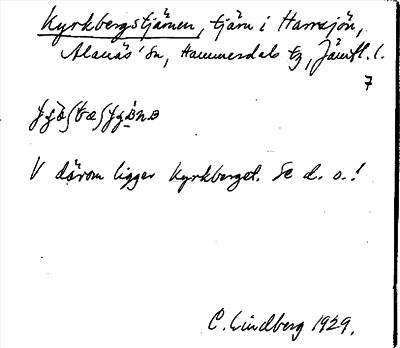 Kyrkbergstjärnen, tjärn i Harrsjön,
Alanäs' sn, Hammerdals tg, Jämtl. l.
7
V därom ligger Kyrkberget. Se d. o.!
C. Lindberg 1929.